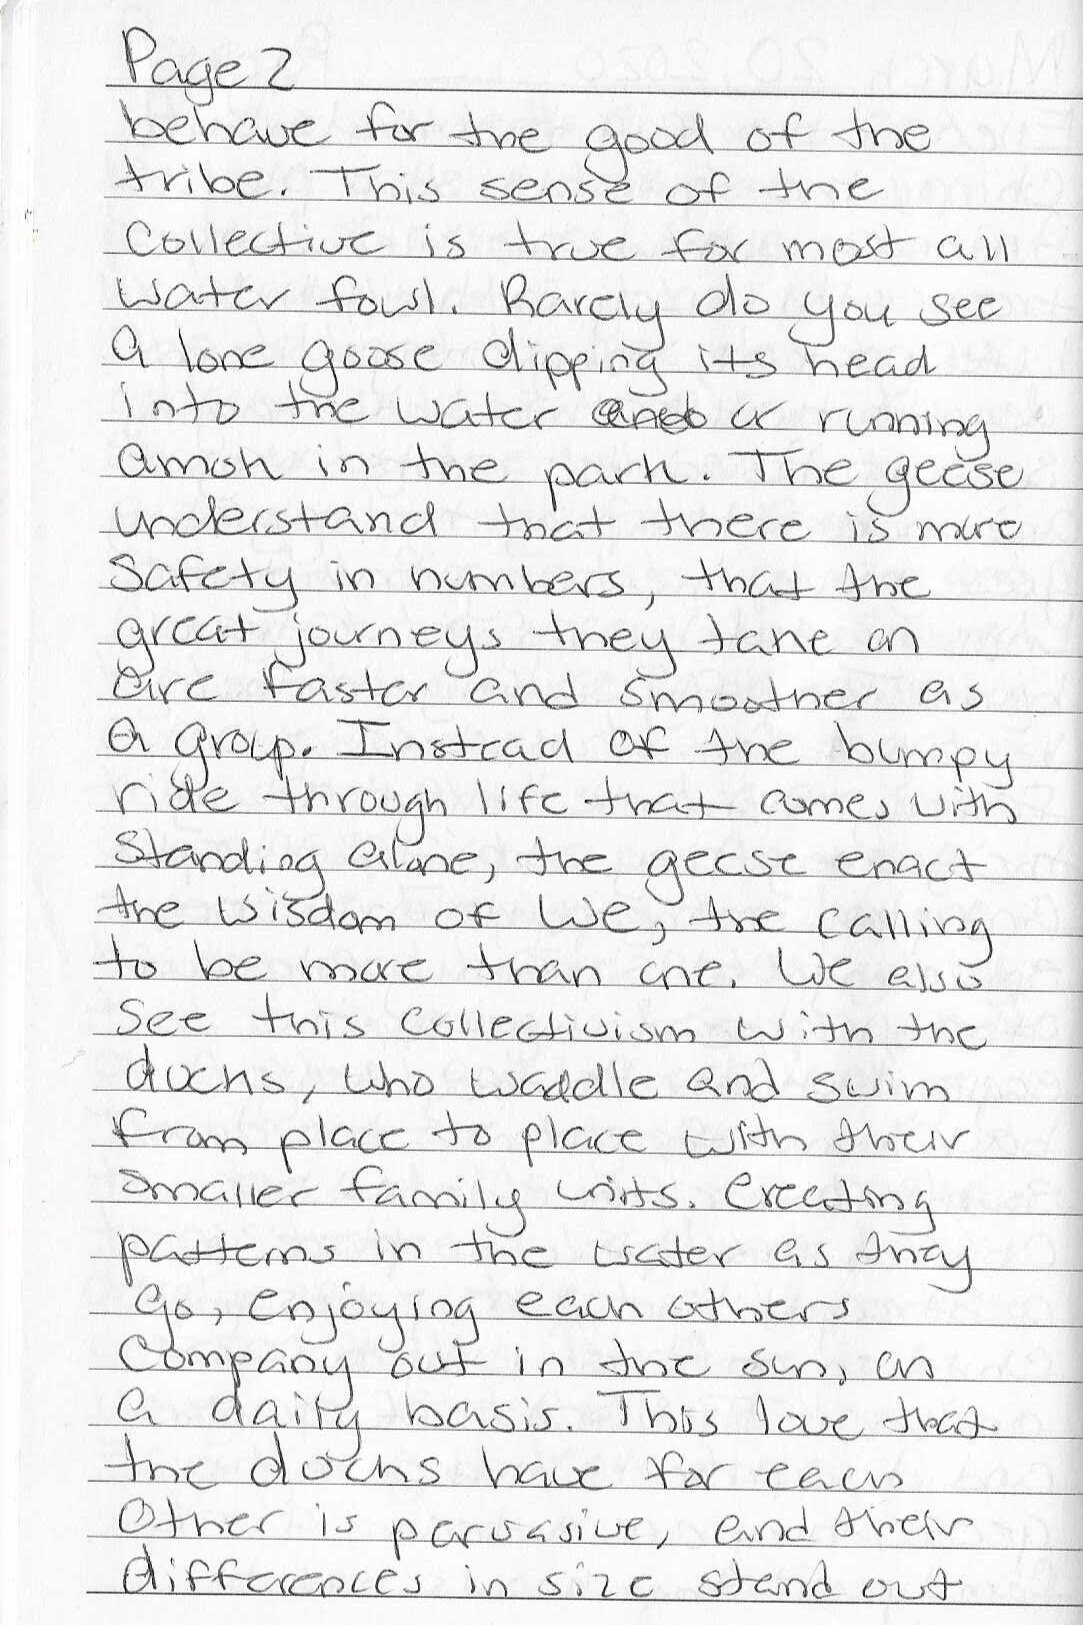 Page 2
behave for the good of the
tribe. This sense of the
Collective is true for most all
water fowl. Rarely do you see
a lone goose dipping its head
into the water or running
amok in the park. The geese
understand that there is more
safety in numbers, that the
great journeys they take on
are faster and smoother as
a group. Instead of the bumpy
ride through life that comes with
standing alone, the geese enact
the wisdom of We, the calling
to be more than one. We also
see this collectivism with the
ducks, who waddle and swim
from place to place with their
smaller family units. Creating
patterns in the water as they
go, enjoying each others
company out in the sun, on
a daily basis. This love that
the ducks have for each
other is pervasive, and their
differences in size stand out